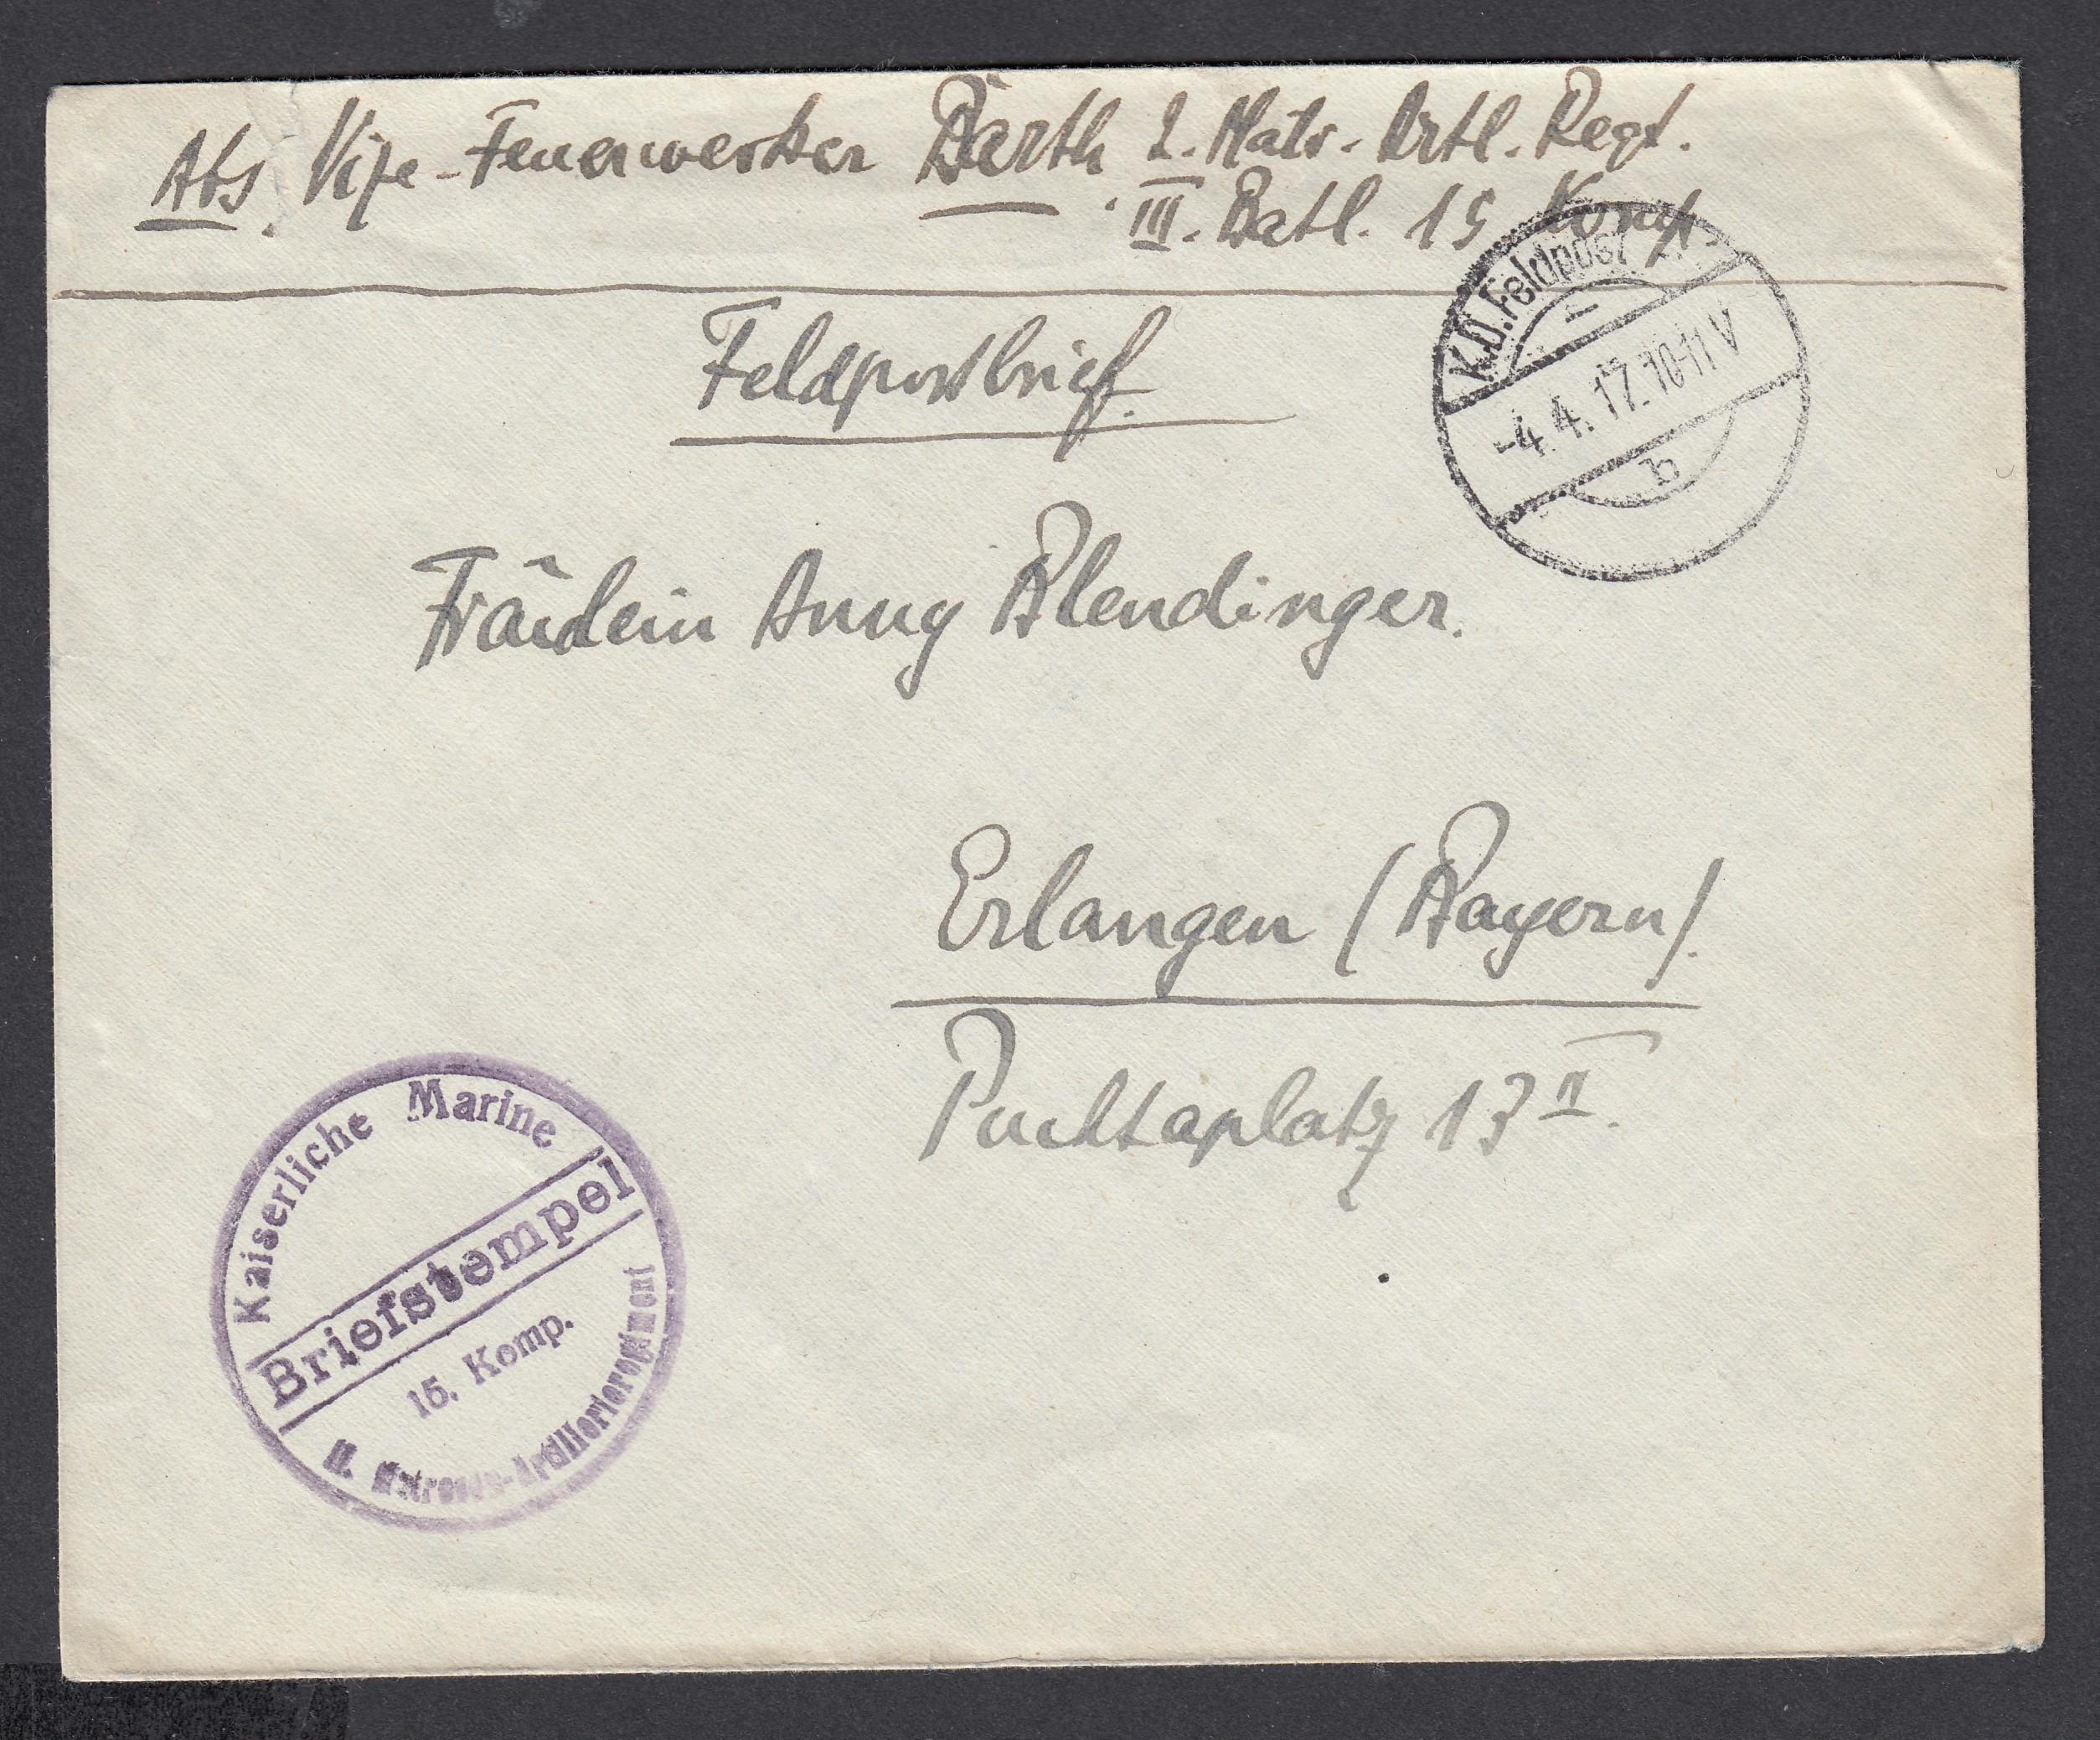 Abs. Vize-Feuerwerker Barth 2. Matr.-Artl. Regt.
III. Batl. 15 Komp.
K.D.Feldpost
-4.4.17.10-11V
b
Feldpostbrief.
Fräulein Anny Blendinger.
Erlangen (Bayern).
Puchtaplatz 13 II.
Kaiserliche Marine
Briefstempel
15. Komp.
II. Matrosen-Artillerieregiment